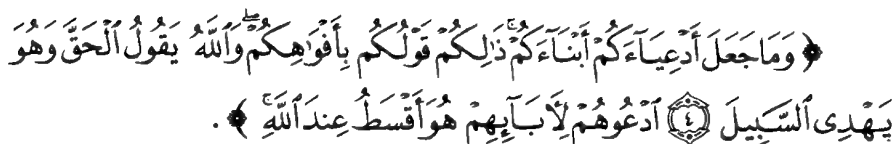 ﴿ وَمَا جَعَلَ أَدْعِيَآءَكُمْ أَبْنَآءَكُمْ ۚ ذَٰلِكُمْ قَوْلُكُم بِأَفْوَٰهِكُمْ ۖ وَٱللَّهُ يَقُولُ ٱلْحَقَّ وَهُوَ
يَهْدِى ٱلسَّبِيلَ ۝٤ ٱدْعُوهُمْ لِأَبَآئِهِمْ هُوَ أَقْسَطُ عِندَ ٱللَّهِ ۚ ﴾ .